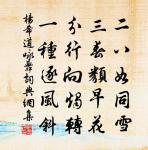 二八如同雪
三春類早花
分行向燭轉
一種逐風斜
楊希道詠舞詞典網集